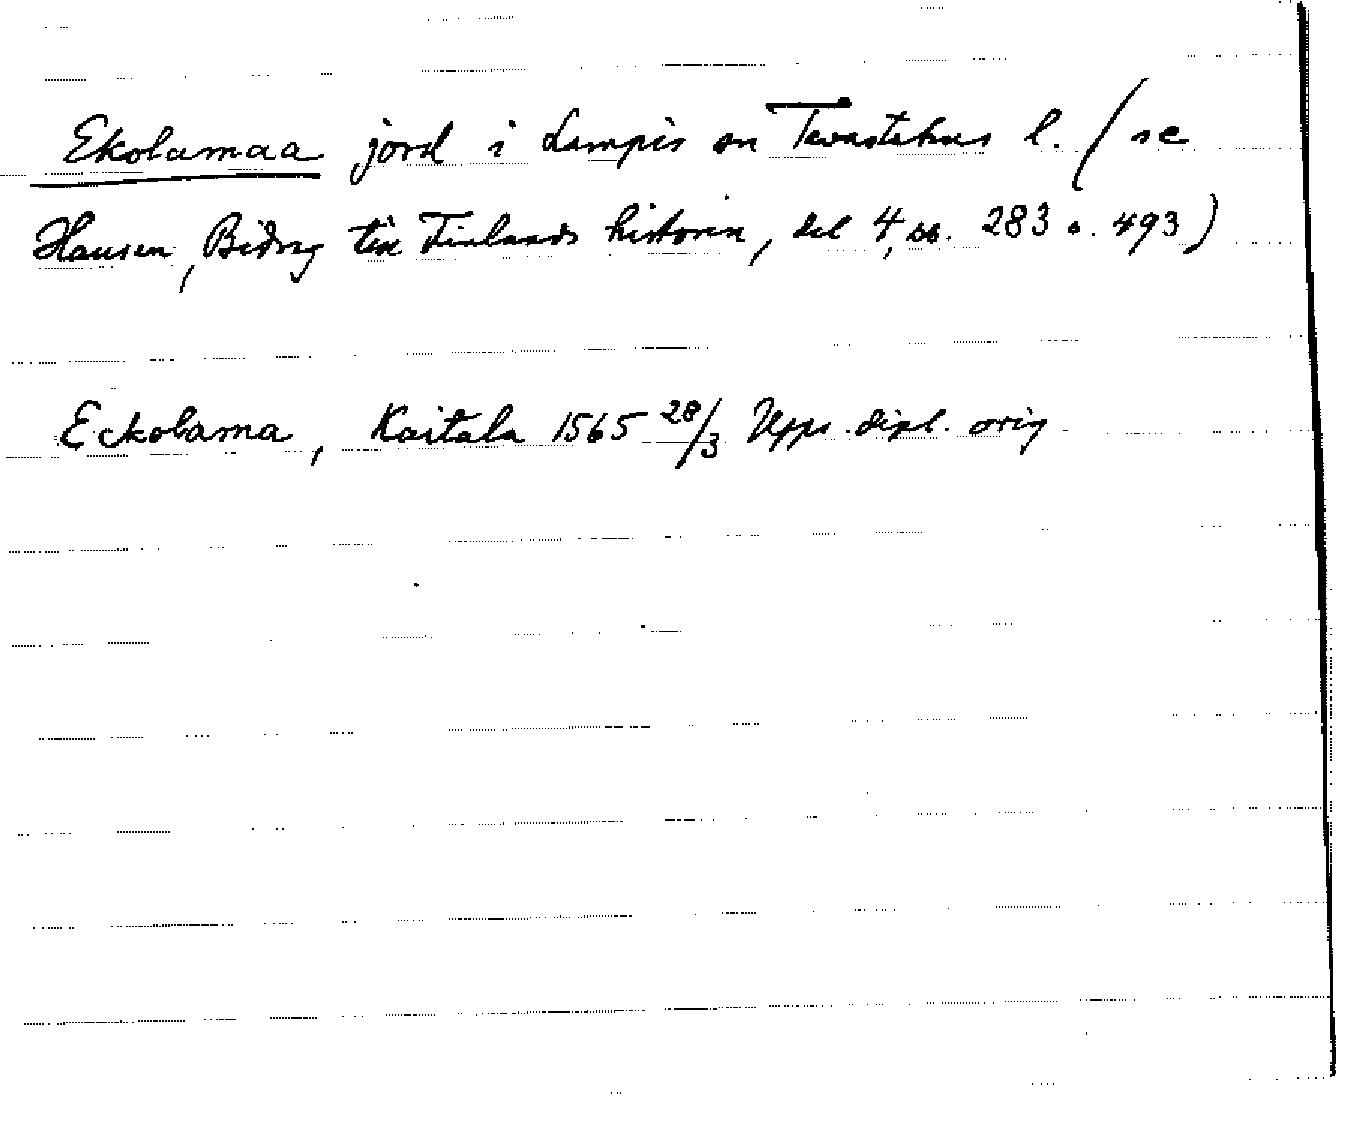 Ekolamaa jord i Lampis sn Tavastehus l. (se
Hausen, Bidrag till Finlands historia, del 4, ss. 283 o. 493)
Eckolama, Kaitala 1565 28/3 Upps. dipl. orig